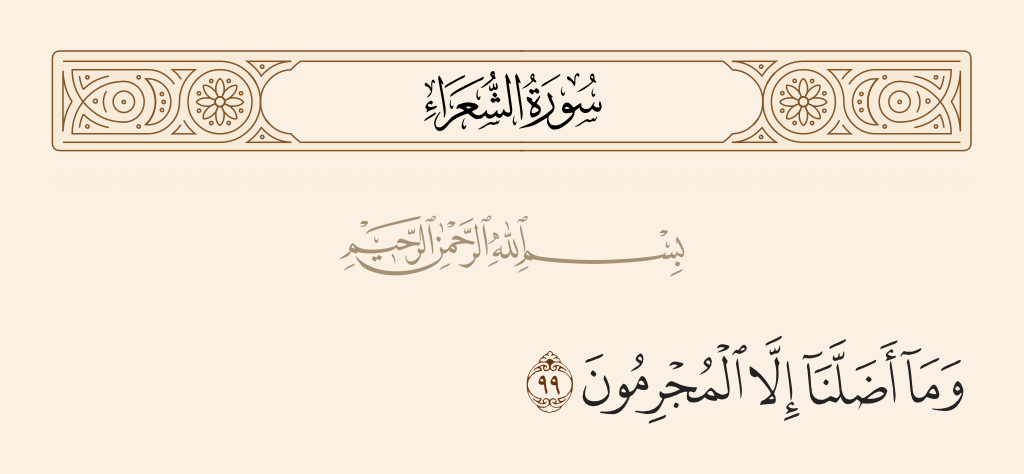 سُورَةُ الشُّعَرَاءِ
بِسْمِ ٱللَّهِ ٱلرَّحْمَٰنِ ٱلرَّحِيمِ
وَمَآ أَضَلَّنَآ إِلَّا ٱلْمُجْرِمُونَ ٩٩